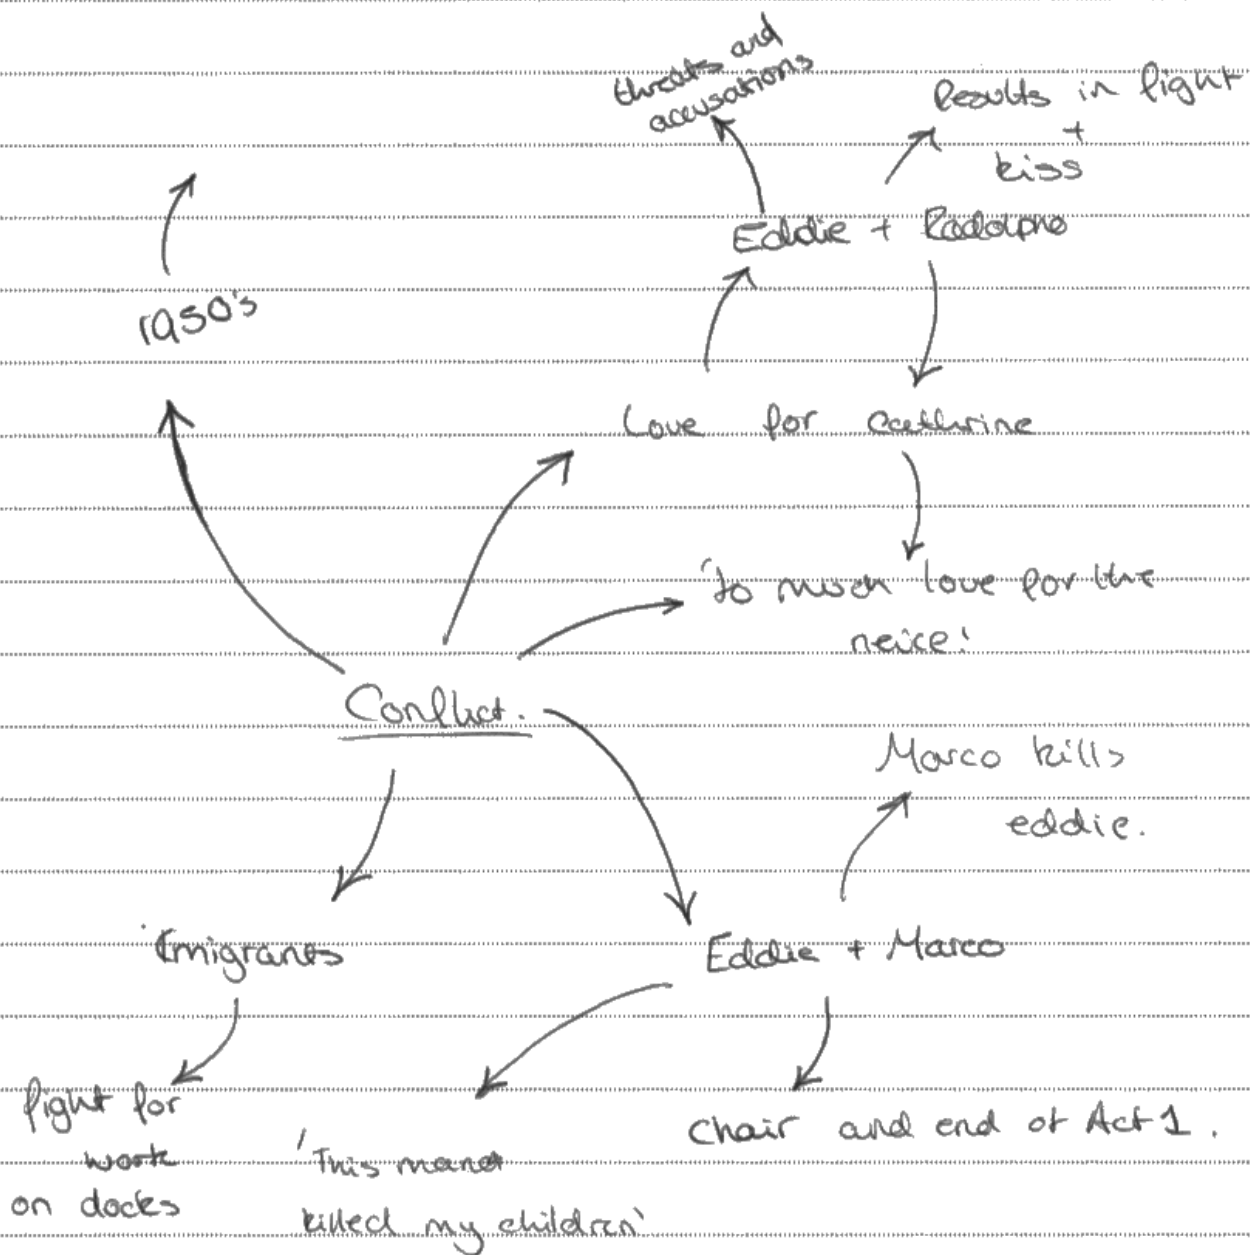 threats and
accusations
Results in fight
+
kiss
Eddie + Rodolpho
1950's
Love for Cathrine
'to much love for the
neice'
Conflict.
Marco kills
eddie.
Emigrants
Eddie + Marco
fight for
work
on docks
Chair and end of Act 1.
'This man
killed my children'